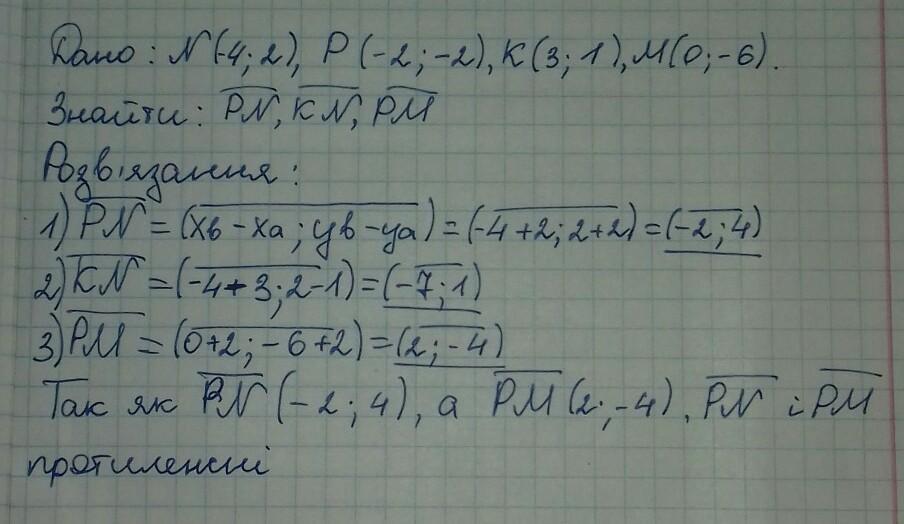 Дано: N(-4; 2), P(-2; -2), K(3; 1), M(0; -6).
Знайти: PN, KN, PM
Розв'язання:
1) PN = (xb - xa; yb - ya) = (-4+2; 2+2) = (-2; 4)
2) KN = (-4-3; 2-1) = (-7; 1)
3) PM = (0+2; -6+2) = (2; -4)
Так як PN (-2; 4), а PM (2; -4), PN і PM
протилежні